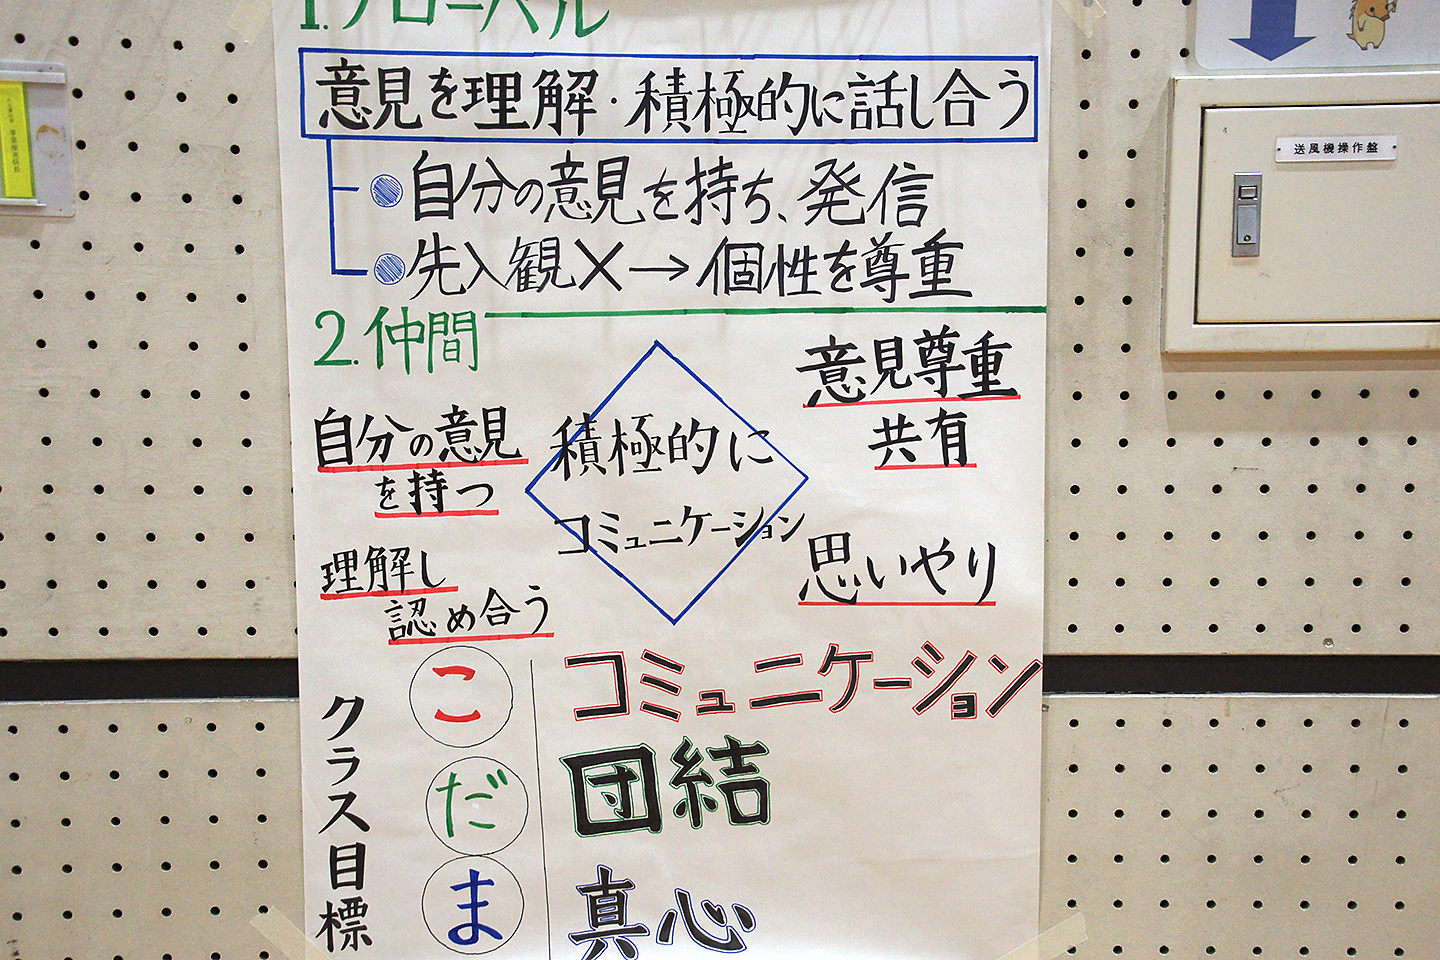 1.グローバル
意見を理解・積極的に話し合う
自分の意見を持ち、発信
先入観×→個性を尊重
2.仲間
自分の意見
を持つ
積極的に
コミュニケーション
意見尊重
共有
理解し
認め合う
思いやり
クラス目標
こ コミュニケーション
だ 団結
ま 真心
送風機操作盤